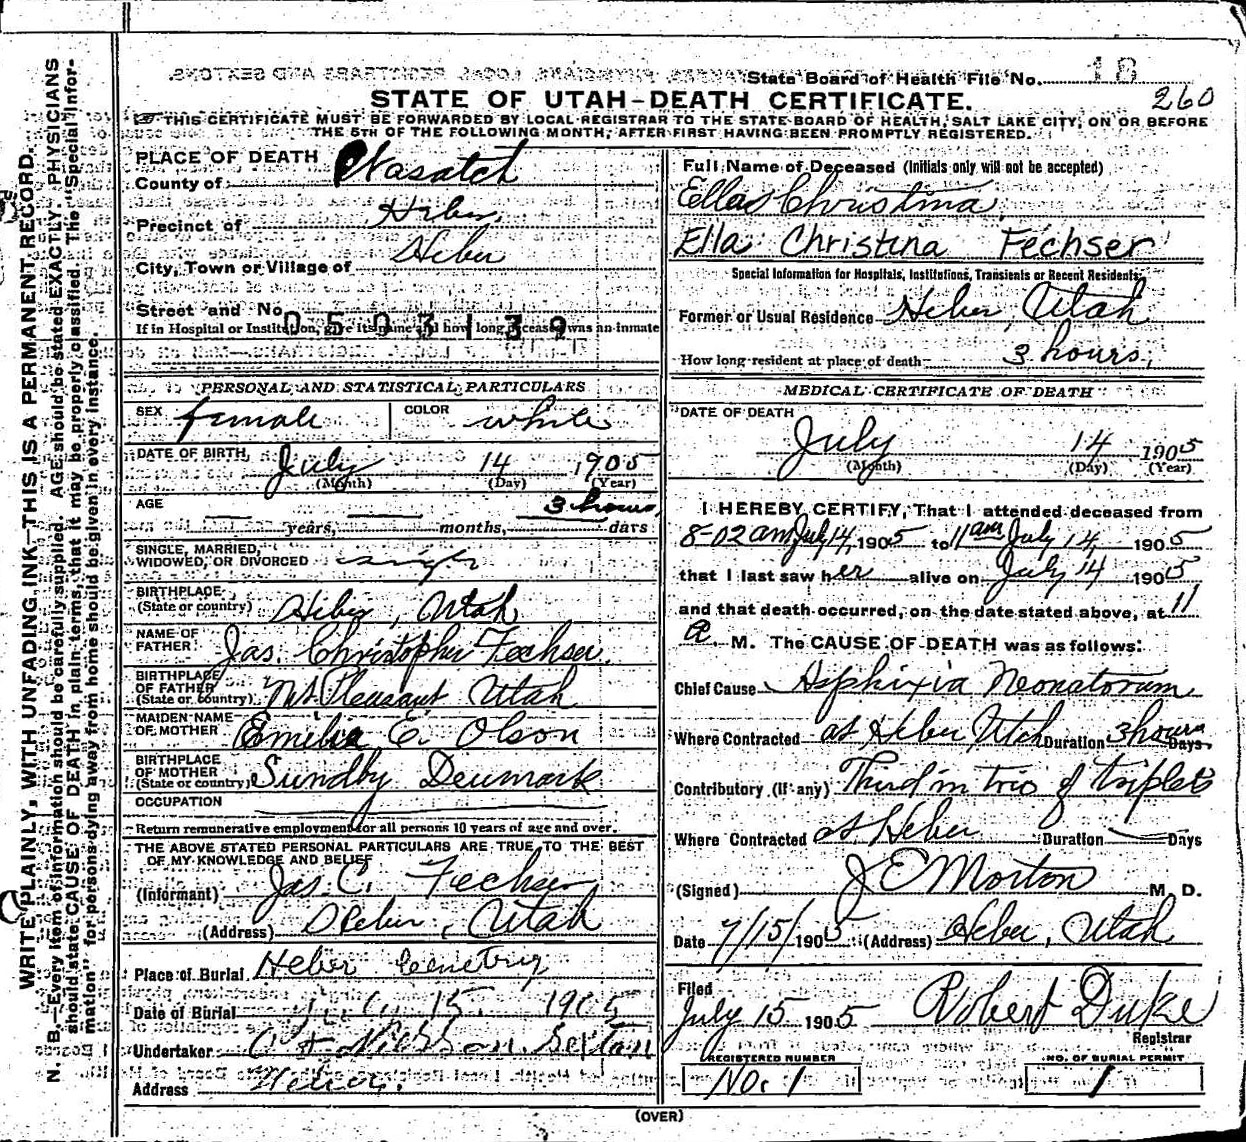 State Board of Health File No. 18
260
STATE OF UTAH—DEATH CERTIFICATE.
THIS CERTIFICATE MUST BE FORWARDED BY LOCAL REGISTRAR TO THE STATE BOARD OF HEALTH, SALT LAKE CITY, ON OR BEFORE
THE 5TH OF THE FOLLOWING MONTH, AFTER FIRST HAVING BEEN PROMPTLY REGISTERED.
WRITE PLAINLY, WITH UNFADING INK—THIS IS A PERMANENT RECORD.
N. B.—Every item of information should be carefully supplied. AGE should be stated EXACTLY. PHYSICIANS
should state CAUSE OF DEATH in plain terms, that it may be properly classified. The "Special Infor-
mation" for persons dying away from home should be given in every instance.
PLACE OF DEATH
County of Wasatch
Precinct of Heber
City, Town or Village of Heber
Street and No.
0503139
If in Hospital or Institution, give its name and how long deceased was an inmate
PERSONAL AND STATISTICAL PARTICULARS
SEX female COLOR white
DATE OF BIRTH July 14 1905
(Month) (Day) (Year)
AGE 3 hours
years, months, days
SINGLE, MARRIED,
WIDOWED, OR DIVORCED single
BIRTHPLACE
(State or country) Heber, Utah
NAME OF
FATHER Jas. Christopher Fechser
BIRTHPLACE
OF FATHER
(State or country) Mt. Pleasant Utah
MAIDEN NAME
OF MOTHER Emelia E. Olson
BIRTHPLACE
OF MOTHER
(State or country) Sundby Denmark
OCCUPATION
Return remunerative employment for all persons 10 years of age and over.
THE ABOVE STATED PERSONAL PARTICULARS ARE TRUE TO THE BEST
OF MY KNOWLEDGE AND BELIEF
(Informant) Jas. C. Fechser
(Address) Heber, Utah
Place of Burial Heber Cemetery
Date of Burial July 15 1905
Undertaker Sexton
Address Heber.
Full Name of Deceased (Initials only will not be accepted)
Ella Christina
Ella Christina Fechser
Special Information for Hospitals, Institutions, Transients or Recent Residents:
Former or Usual Residence Heber, Utah
How long resident at place of death 3 hours.
MEDICAL CERTIFICATE OF DEATH
DATE OF DEATH
July 14 1905
(Month) (Day) (Year)
I HEREBY CERTIFY, That I attended deceased from
8-02 am July 14, 1905 to 11 am July 14, 1905
that I last saw her alive on July 14 1905
and that death occurred, on the date stated above, at 11
a M. The CAUSE OF DEATH was as follows:
Chief Cause Asphixia Neonatorum
Where Contracted at Heber Utah Duration 3 hours Days.
Contributory (if any) Third in trio of triplets
Where Contracted at Heber Duration — Days
(Signed) J E Morton M. D.
Date 7/15/1905 (Address) Heber, Utah
Filed
July 15 1905 Robert Duke
Registrar
REGISTERED NUMBER
No. 1
NO. OF BURIAL PERMIT
1
(OVER)